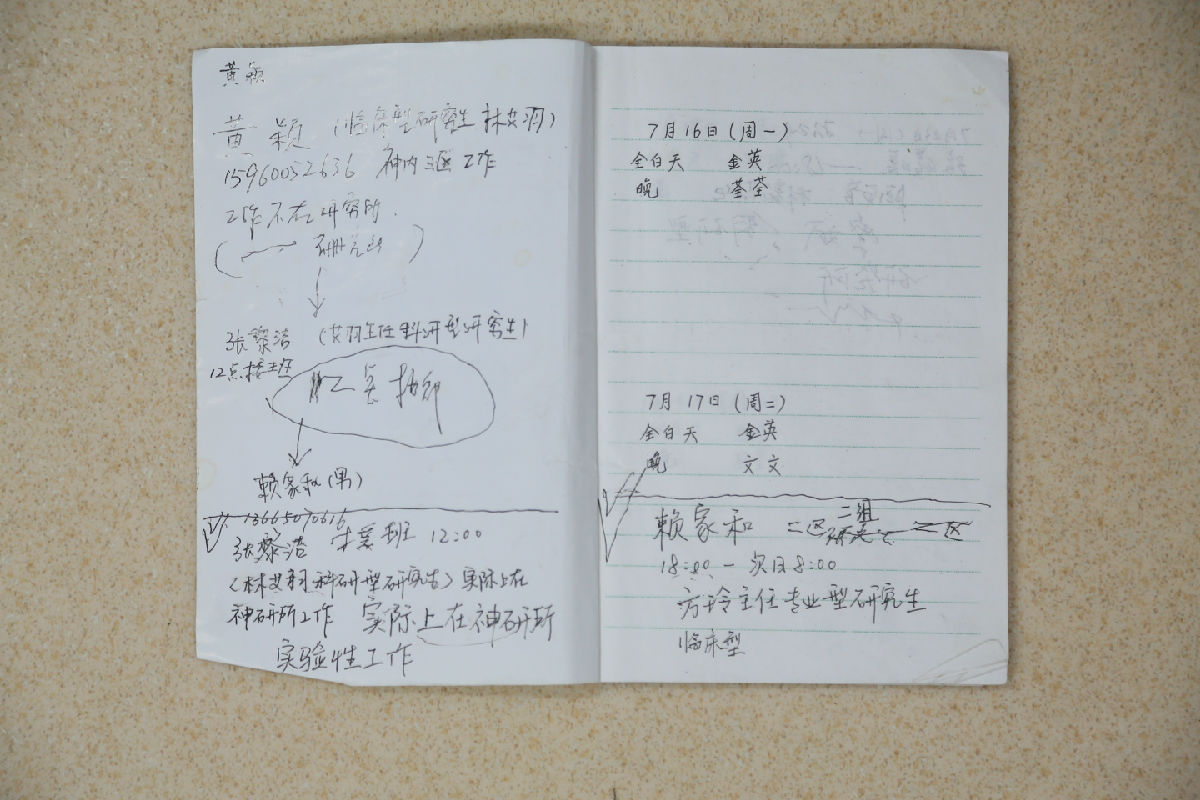 黄颖
黄颖 (临床型研究生 林艾羽)
15960052636 神内三区工作
工作不在研究所.
( 研究所 )
张黎洁 (艾羽主任科研型研究生)
12点接班
赖家和 (男)
13665070616
张黎洁 来接班 12:00
(林艾羽科研型研究生) 实际上在
神研所工作 实际上在神研所
实验性工作
7月16日(周一)
全白天 金英
晚 荃荃
7月17日(周二)
全白天 金英
晚 文文
二组
赖家和 二区 二区
18:00 — 次日8:00
方玲主任专业型研究生
临床型